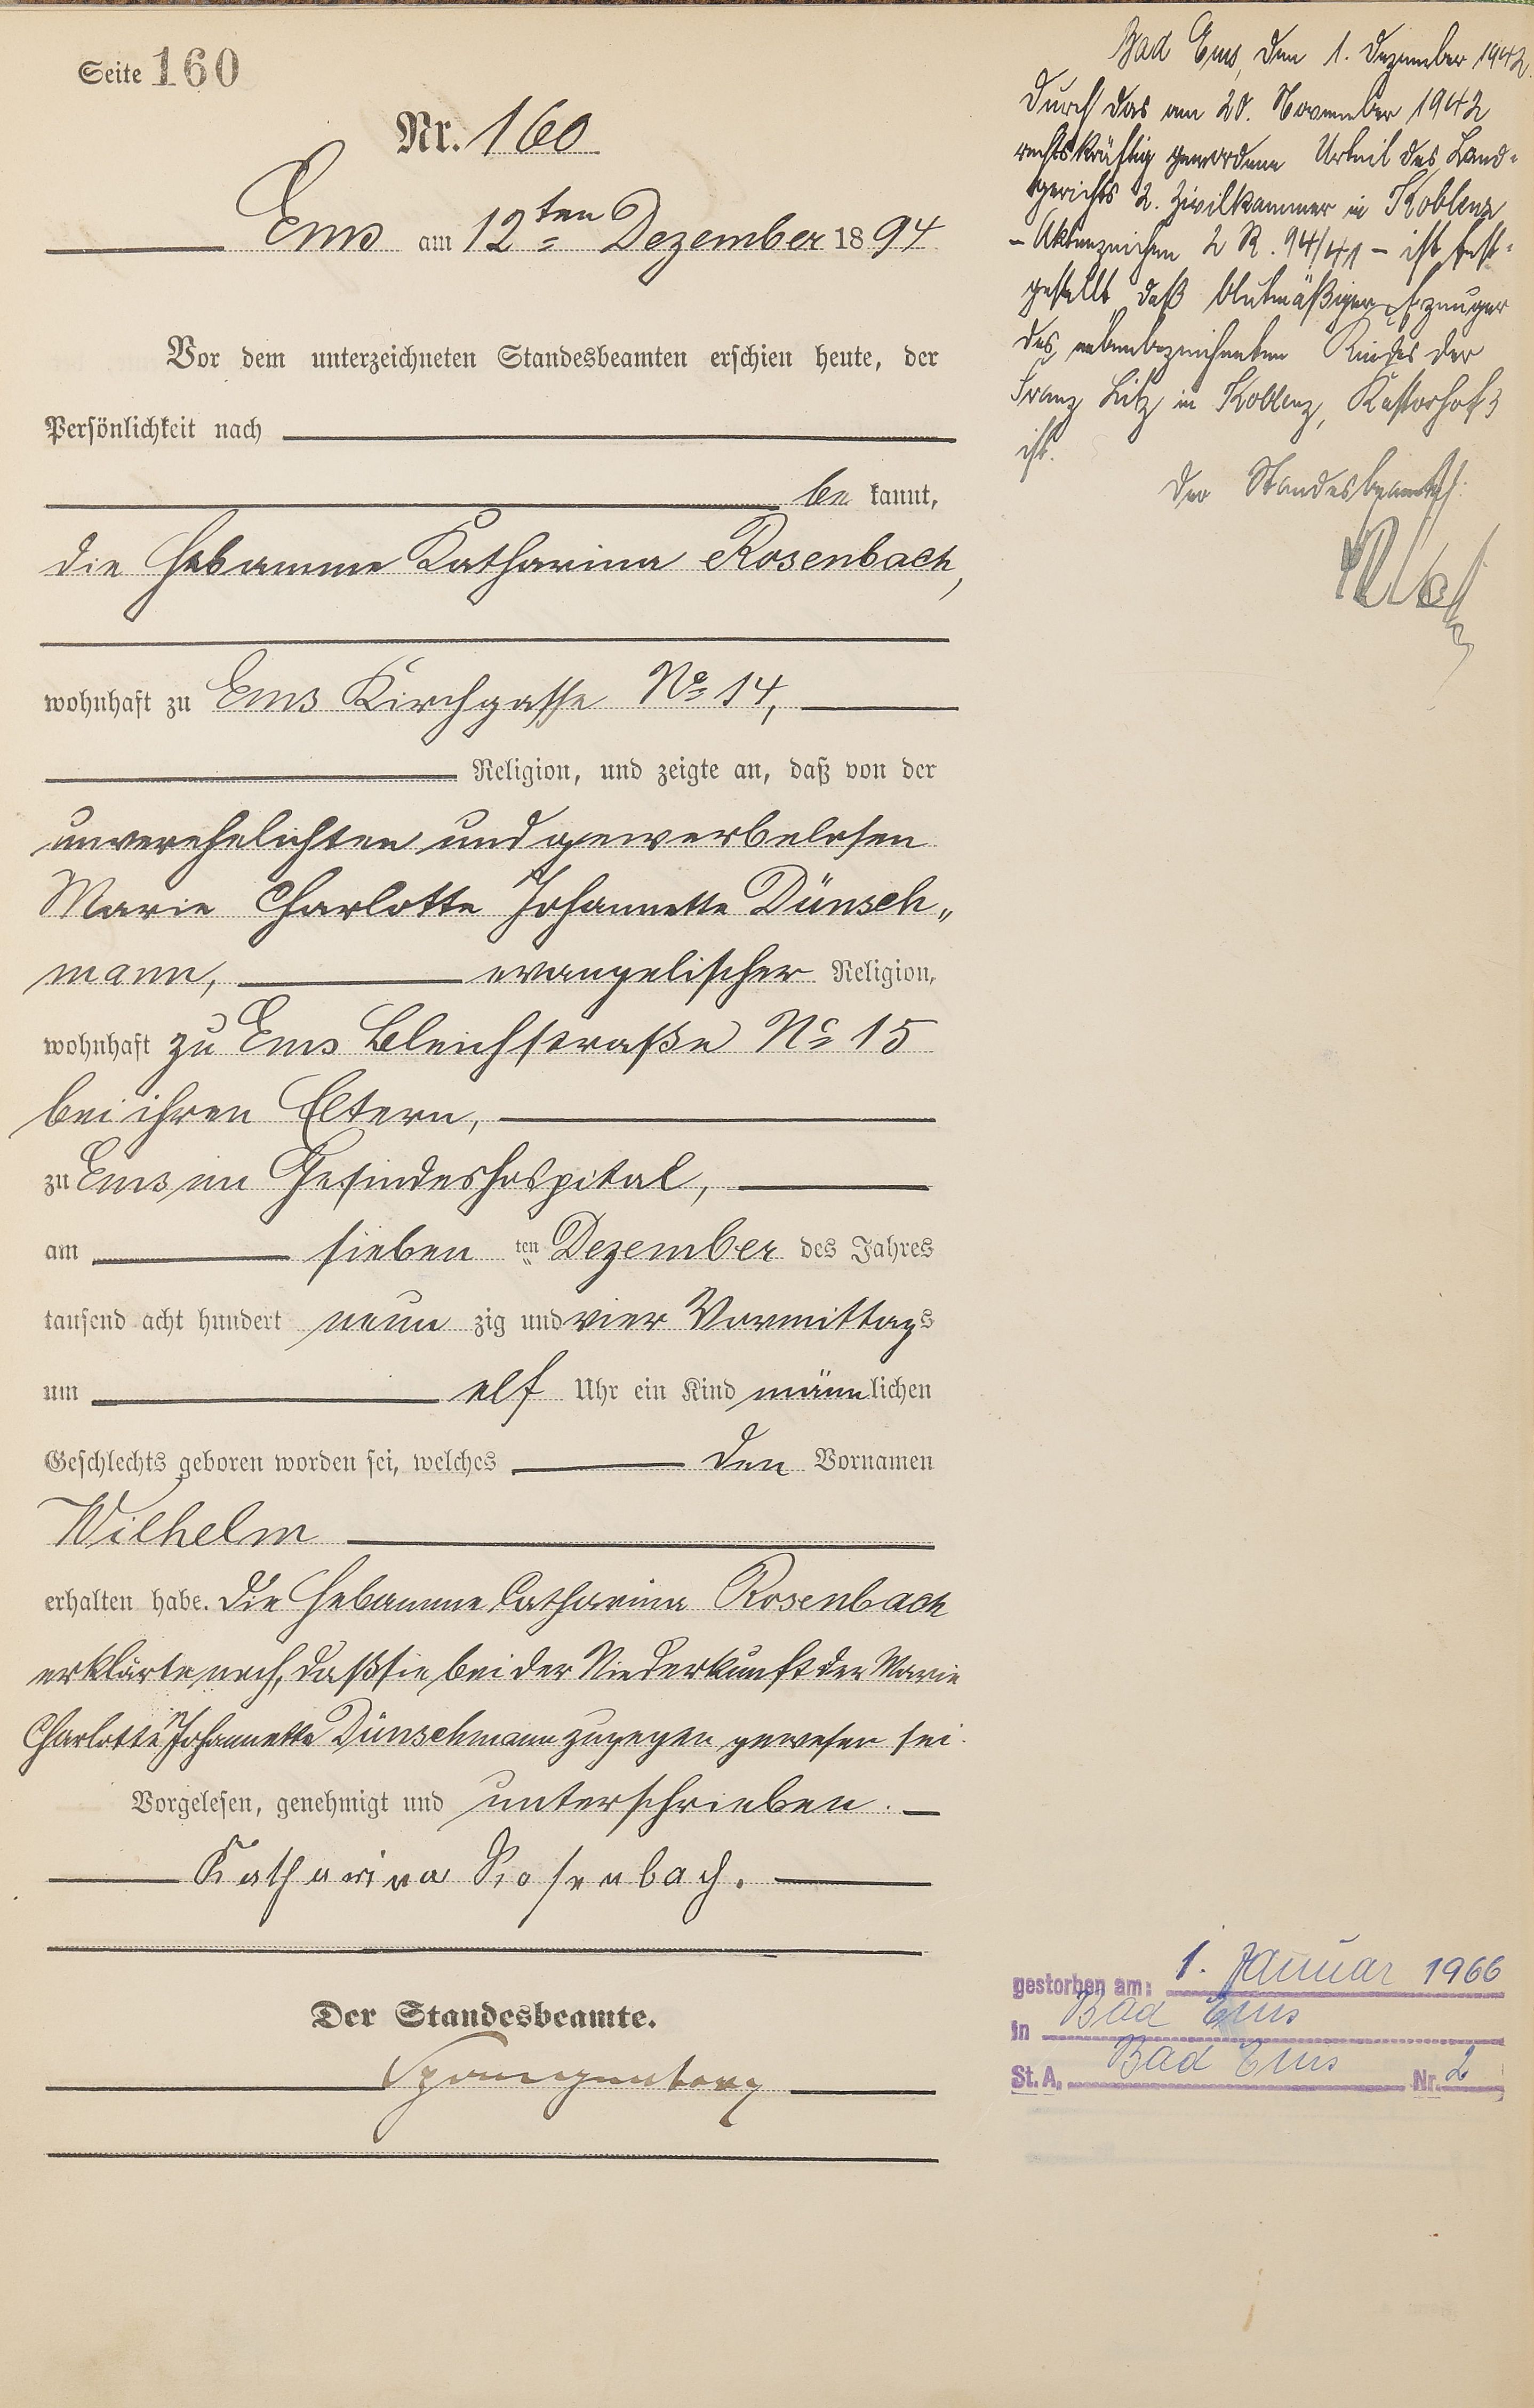 Seite 160
Nr. 160
Ems am 12ten Dezember 1894
Vor dem unterzeichneten Standesbeamten erschien heute, der
Persönlichkeit nach
be kannt,
die Hebamme Katharina Rosenbach,
wohnhaft zu Ems Kirchgasse No 14,
Religion, und zeigte an, daß von der
unverehelichten und gewerbelosen
Marie Charlotte Johannette Dünsch„
mann, evangelischer Religion,
wohnhaft zu Ems Bleichstraße No 15
bei ihren Eltern,
zu Ems im Gesindeshospital,
am sieben ten Dezember des Jahres
tausend acht hundert neun zig und vier Vormittags
um elf Uhr ein Kind männlichen
Geschlechts geboren worden sei, welches den Vornamen
Wilhelm
erhalten habe. Die Hebamme Catharina Rosenbach
erklärte noch, daß sie bei der Niederkunft der Marie
Charlotte Johannette Dünschmann zugegen gewesen sei.
Vorgelesen, genehmigt und unterschrieben.
Katharina Rosenbach.
Der Standesbeamte.
Spangenberg
Bad Ems, den 1. Dezember 1942.
Durch das am 20. November 1942
rechtskräftig gewordene Urteil des Land-
gerichts 2. Zivilkammer in Koblenz
- Aktenzeichen 2 R. 94/41 - ist fest-
gestellt, daß blutmäßiger Erzeuger
des nebenbezeichneten Kindes der
Franz Litz in Koblenz, Kastorhof 3
ist.
Der Standesbeamte:
gestorben am: 1. Januar 1966
in Bad Ems
St. A. Bad Ems Nr. 2